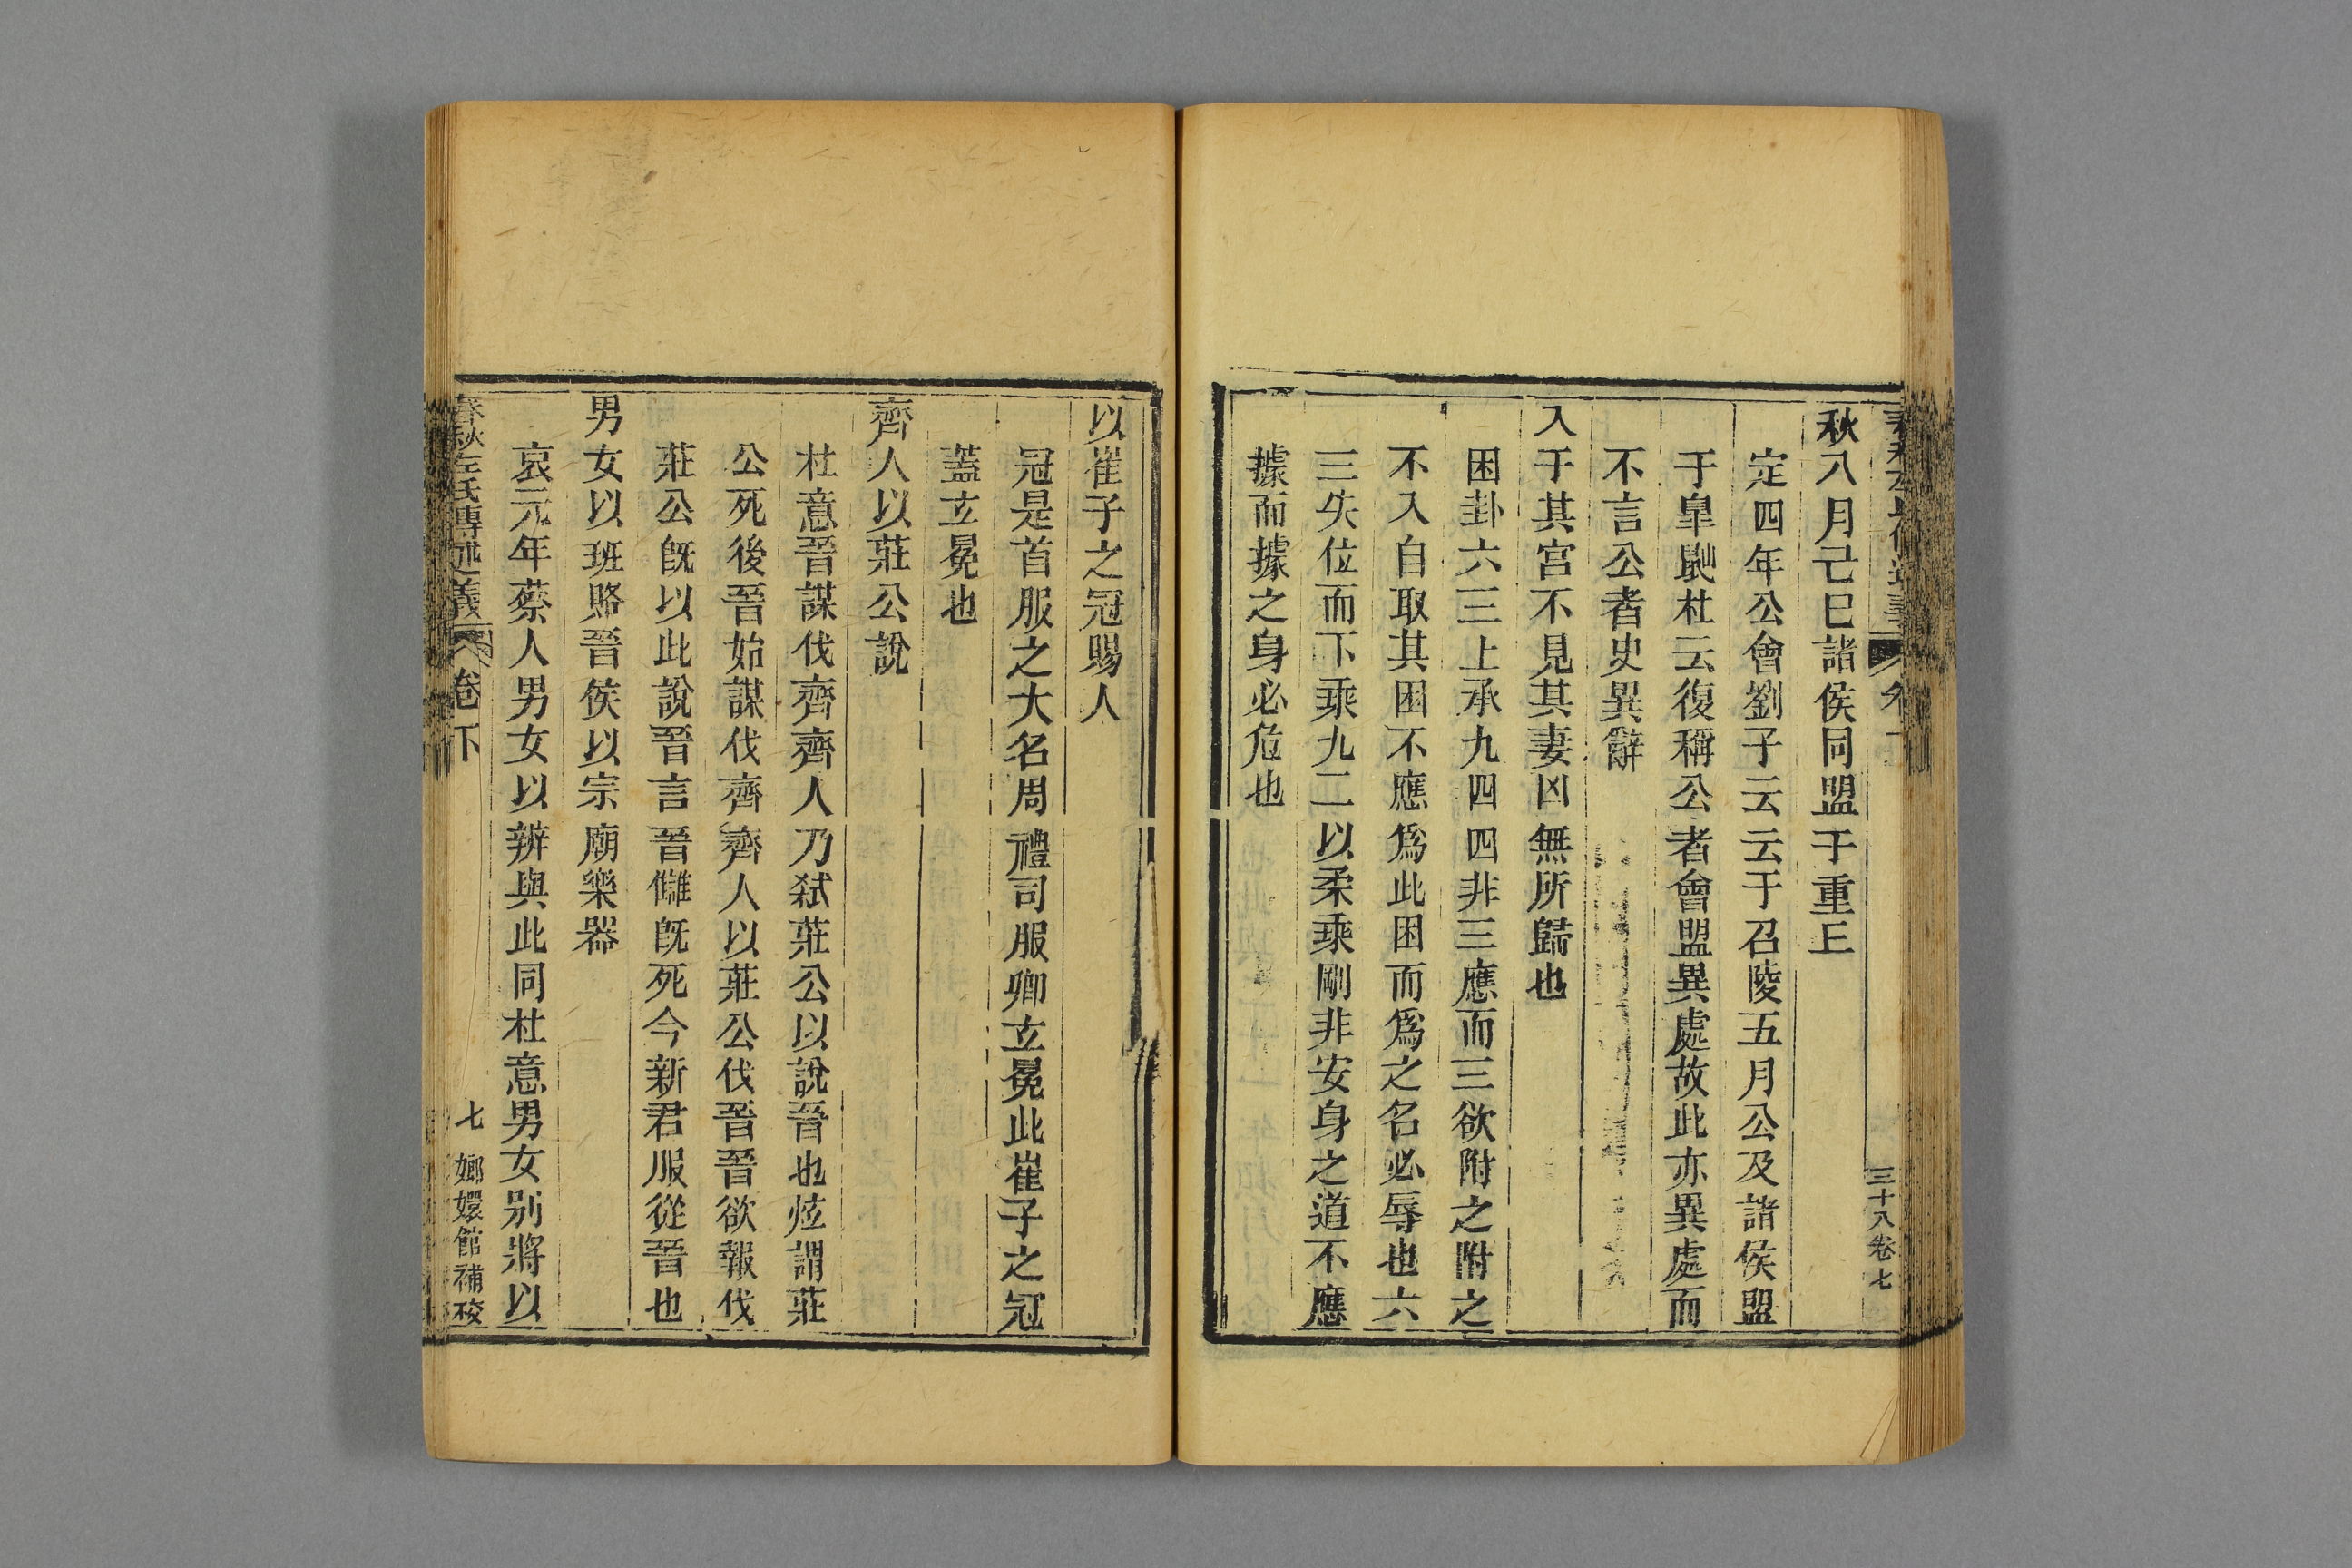 秋八月己巳諸侯同盟于重丘
定四年公會劉子云云于召陵五月公及諸侯盟
于皐鼬杜云復稱公者會盟異處故此亦異處而
不言公者史異辭
入于其宮不見其妻凶無所歸也
困卦六三上承九四四非三應而三欲附之附之
不入自取其困不應爲此困而爲之名必辱也六
三失位而下乘九二以柔乘剛非安身之道不應
據而據之身必危也
三十八卷七
以崔子之冠賜人
冠是首服之大名周禮司服卿玄冕此崔子之冠
蓋玄冕也
齊人以莊公說
杜意晉謀伐齊齊人乃弑莊公以說晉也炫謂莊
公死後晉始謀伐齊齊人以莊公伐晉晉欲報伐
莊公既以此說晉言晉讎既死今新君服從晉也
男女以班賂晉侯以宗廟樂器
哀元年蔡人男女以辨與此同杜意男女別將以
春秋左氏傳述義 卷下 七 嫏嬛館補校